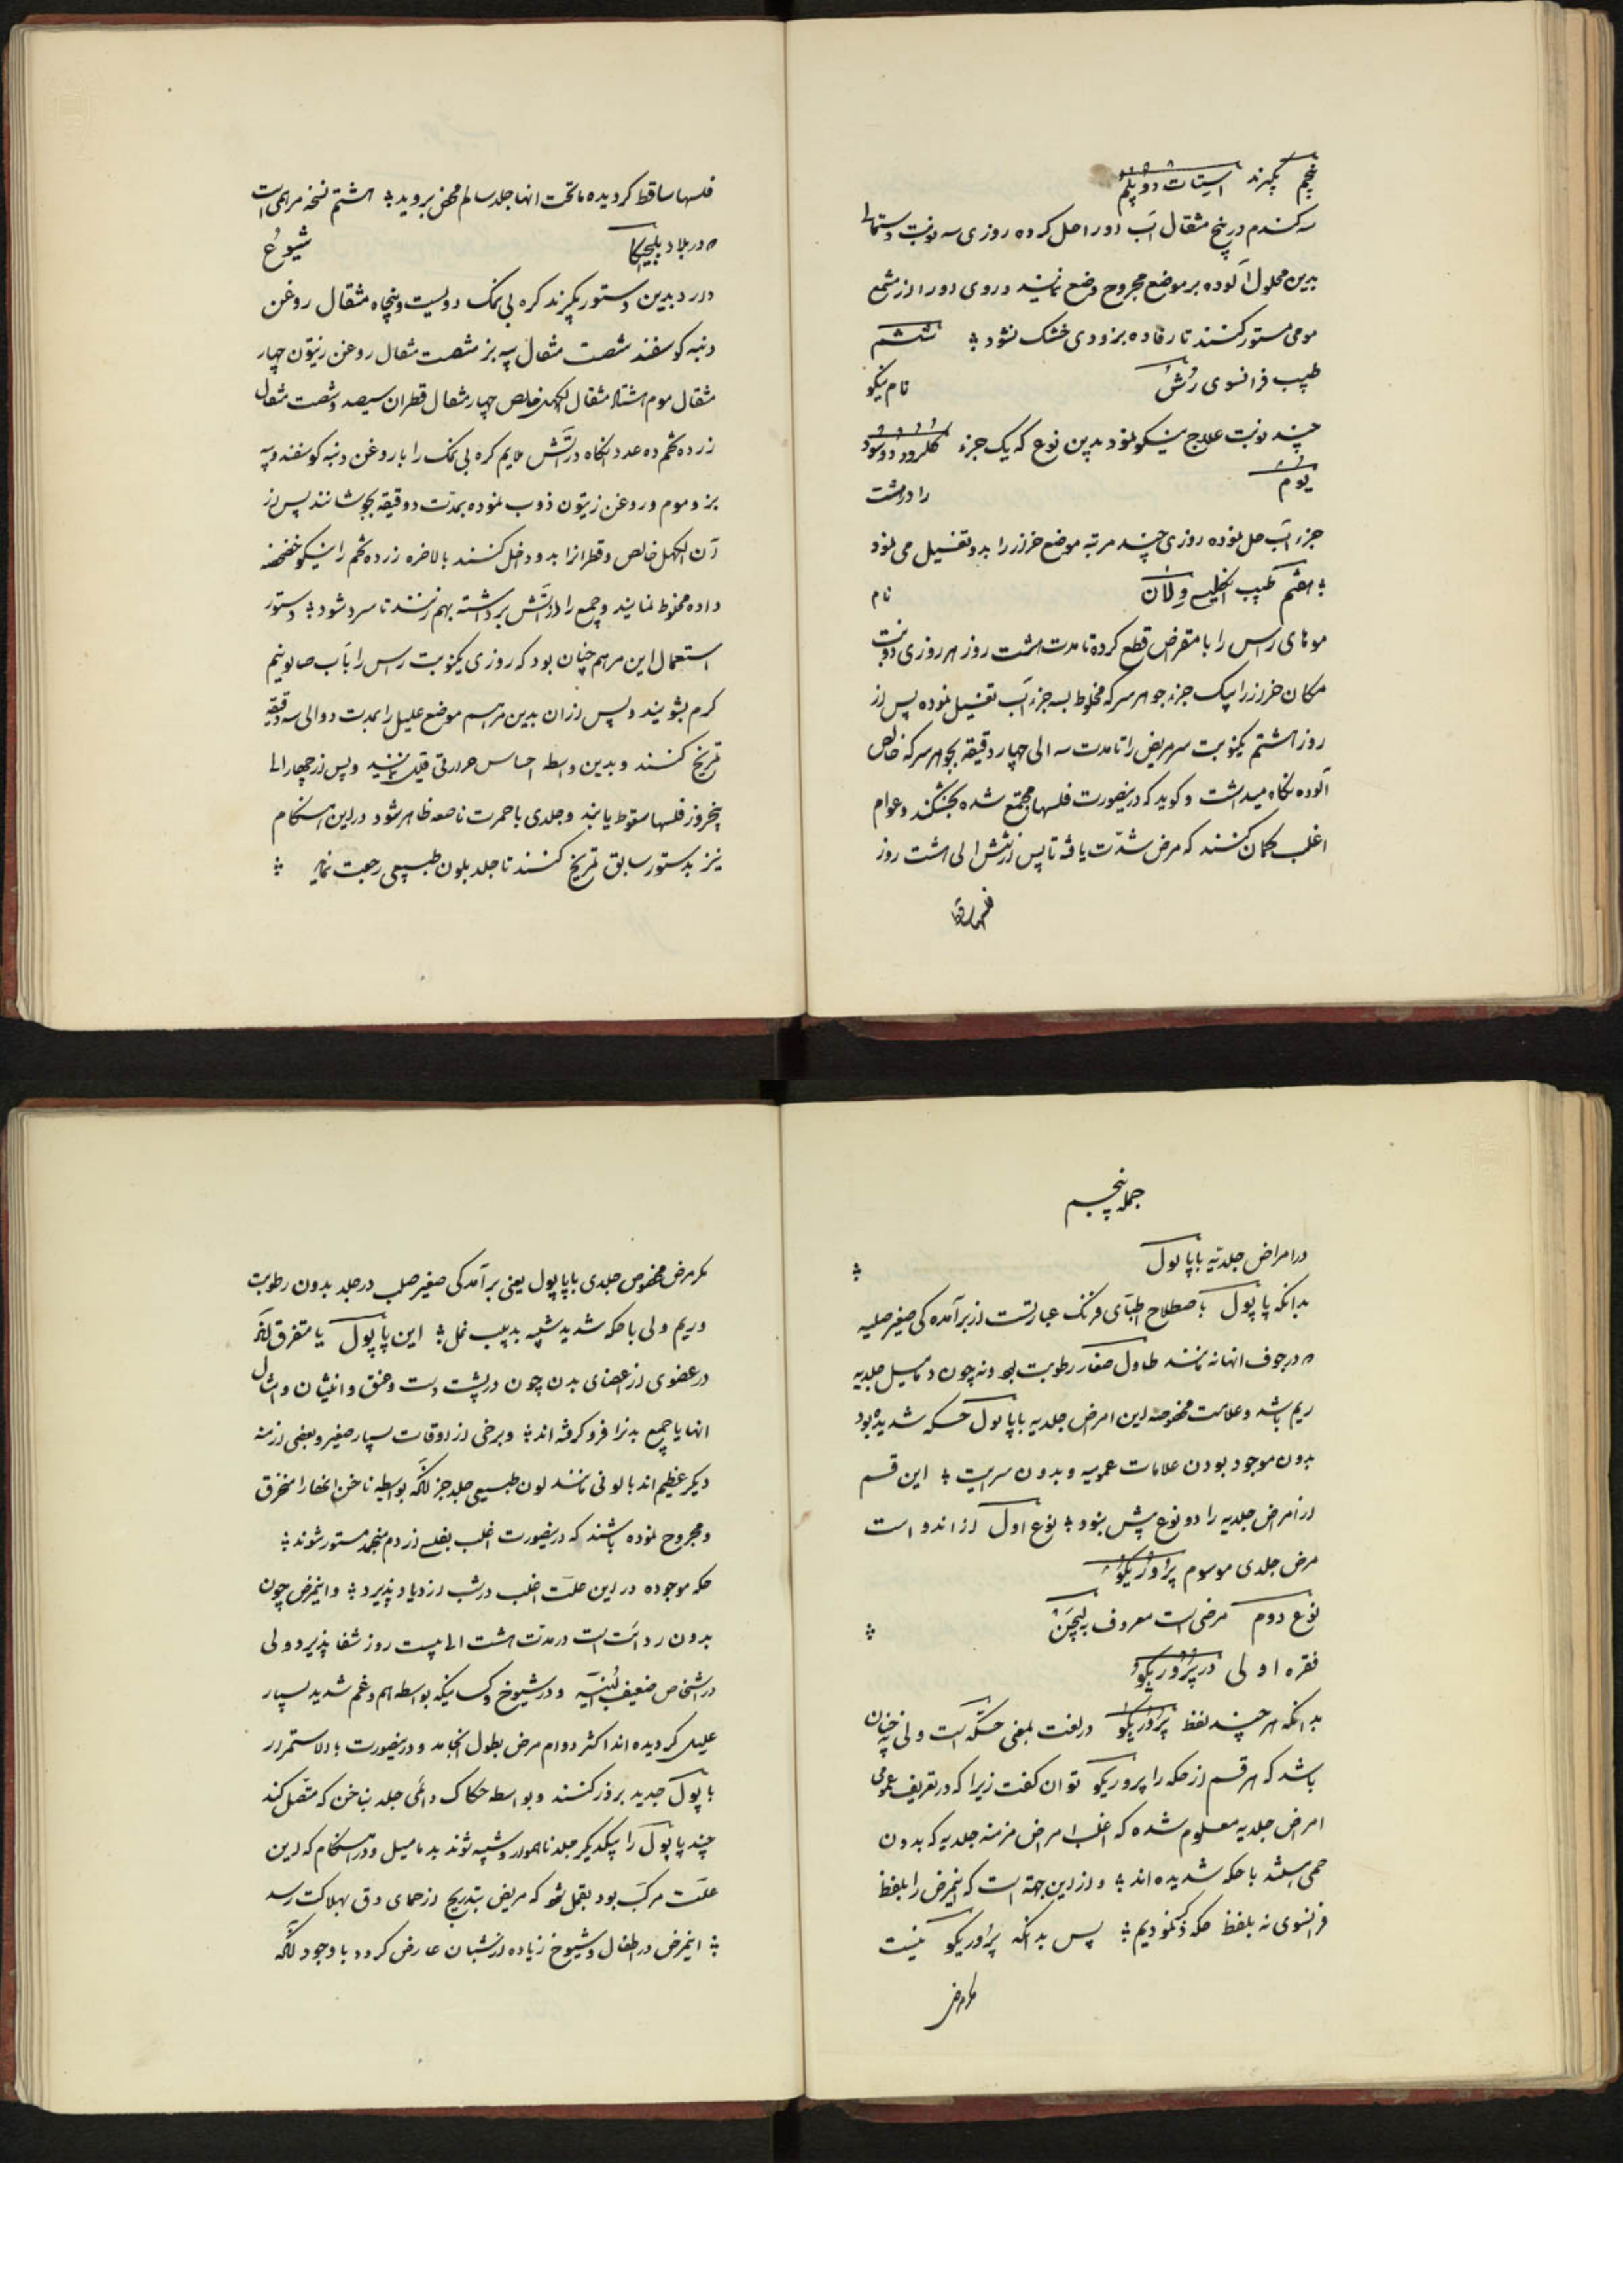 پنجم بگیرند استات دو پلم
سه گندم در پنج مثقال آب اورا حل کرده روزی سه نوبت دستمالی
بدین محلول آلوده بر موضع مجروح وضع نمایند و روی اورا از مشمع
مومی مستور کنند تا رفاده بزودی خشک نشود ؞ ششم
طبیب فرانسوی رُشُ نام نیکو
چند نوبت علاج نیکو نمود بدین نوع که یک جزء کلرور دو سود
یوم را در هشت
جزء آب حل نموده روزی چند مرتبه موضع خزاز را بدو تغسیل می نمود
؞ هفتم طبیب انکلیسی وِلان نام
موهای راس را با مقراض قطع کرده تا مدت هشت روز هر روزی دو نوبت
مکان خزاز را بیک جزء جوهر سرکه مخلوط بسه جزء آب تغسیل نموده پس از
روز هشتم یکنوبت سر مریض را تا مدت سه الی چهار دقیقه بجوهر سرکه خالص
آلوده نکاه میداشت و کوید که درینصورت فلسها مجتمع شده بخشکند و عوام
اغلب کمان کنند که مرض شدّت یافته تا پس از شش الی هشت روز
فلسها ساقط
فلسها ساقط کردیده ماتحت انها جلد سالم محض بروید ؞ هشتم نسخه مرهمی است
که در بلاد بلجیکا شیوُع
دارد بدین دستور بکیرند کره بی نمک دویست و پنجاه مثقال روغن
دنبه کوسفند شصت مثقال پیه بز شصت مثقال روغن زیتون چهار
مثقال موم هشتاد مثقال الکهل خالص چهار مثقال قطران سیصد و شصت مثقال
زرده تخم ده عدد انکاه در آتش ملایم کره بی نمک را با روغن دنبه کوسفند و پیه
بز و موم و روغن زیتون ذوب نموده بمدّت دو دقیقه بجوشانند پس از
آن الکهل خالص و قطرانرا بدو داخل کنند بالاخره زرده تخم را نیکو خضخضه
داده مخلوط نمایند و جمیع را از آتش برداشته بهم زنند تا سرد شود ؞ دستور
استعمال این مرهم چنان بود که روزی یکنوبت راس را بآب صابونیم
کرم بشویند و پس ازان بدین مرهم موضع علیل را بمدت دو الی سه دقیقه
تمریخ کنند و بدین واسطه احساس حرارتی قلیل نمایند و پس از چهار الی
پنجروز فلسها سقوط یابند و جلدی با حمرت ناصعه ظاهر شود در این هنکام
نیز بدستور سابق تمریخ کنند تا جلد بلون طبیعی رجعت نماید ؞
جمله پنجم
در امراض جلدیّه با پاپول ؞
بدانکه پاپول باصطلاح اطبّای فرنک عبارتست از برآمده کی صغیر صلبه
که در جوف انها نه مانند طاول صغار رطوبت بود و نه چون دمامیل جلدیه
ریم باشد و علامت مخصوصه این امراض جلدیه با پاپول حکه شدیده بود
بدون موجود بودن علامات عمومیه و بدون سرایت ؞ این قسم
از امراض جلدیه را دو نوع بیش نبود ؞ نوع اول از اندو است
مرض جلدی موسوم پرُوریکُو
نوع دوم مرضی است معروف به لیچِنْ ؞
فقره اولی در پرُوریکو
بدانکه هر چند لفظ پرُوریکو در لغت بمعنی حکّه است ولی نه چنان
باشد که هر قسم از حکه را پروریکو توان کفت زیرا که در تعریف عمومی
امراض جلدیه معلوم شده که اغلب امراض مزمنه جلدیه که بدون
حمی باشند با حکه شدیده اند ؞ و از این جهته است که اینمرض را بلفظ
فرانسوی نه بلفظ حکه ذکر نمودیم ؞ پس بدانکه پرُوریکو نیست
مکر مرض
مکر مرض مخصوص جلدی با پاپول یعنی برآمدکی صغیر صلب در جلد بدون رطوبت
و ریم ولی با حکه شدید شبیه بدبیب نمل ؞ این پاپول یا متفرق اند
در عضوی از اعضای بدن چون در پشت دست و عنق و انثیان و امثال
انها یا جمیع بدنرا فرو کرفته اند ؞ و برخی از اوقات بسیار صغیر و بعضی ازمنه
دیکر عظیم اند با لونی مانند لون طبیعی جلد جز انکه بواسطه ناخن انها را منخرق
و مجروح نموده باشند که درینصورت اغلب بفلسی از دم منجمد مستور شوند ؞
حکه موجوده در این علّت اغلب در شب ازدیاد پذیرد ؞ و اینمرض چون
بدون ردائت است در مدّت هشت الی بیست روز شفا پذیرد ولی
در اشخاص ضعیف البُنیّه و در شیوخ و کسانیکه بواسطه هم و غم شدید بسیار
علیل کردیده اند اکثر دوام مرض بطول انجامد و درینصورت بالاستمرار
پاپول جدید بروز کنند و بواسطه حکاک دائمی جلد بناخن که متصل کند
چند پاپول را بیکدیکر جلد ناهموار و شبیه شوند بدمامیل و در هنکام که این
علّت مرکّب بود بقمل شود که مریض بتدریج از حمای دق بهلاکت رسد
؞ اینمرض در اطفال و شیوخ زیاده از شبان عارض کردد با وجود انکه